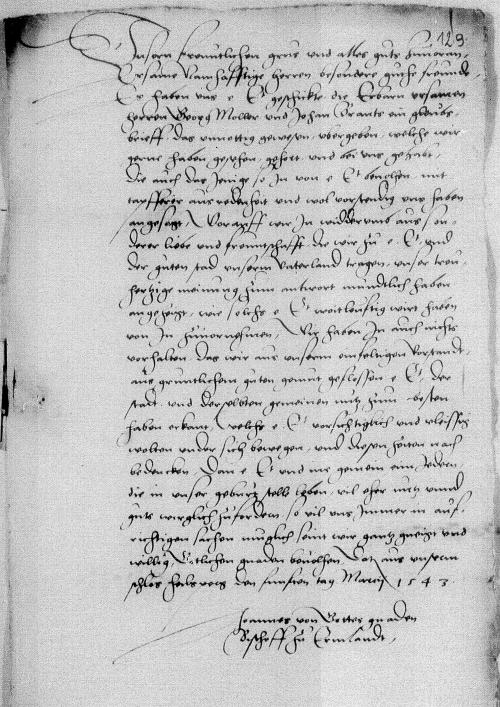 129.
Unsern freuntlichen grus und alles guts zuuoran.
Ersame Namhafftige herren besondere gutte freunde
Es haben uns e Et geschickte die Erbarn ersamen
herren Georg Moller und Johan Brante ein glaubs-
brieff das unnottig gewesen, ubergeben, welche wir
gerne haben gesehen, gehort, und bei uns gehabt,
die auch das jenige so in von e Et beuolhen, mit
tapfferer ausredenheit und wol vorstendig uns haben
angesagt, Worauff wir in widderumb aus son-
derer liebe und freuntschafft die wir zu e Et und
der guten stad unserm vaterland tragen, unser treu-
hertzige meinung zum antwort muntlich haben
angezeigt, wie solche e Et weitleuftig wirt haben
von in zuuornehmen, Wir haben in auch nichts
vorhalten das wir aus unserm einfeltigen Vorstandt,
aus gruntlichem guten gemut geflossen e Et, der
stadt, und derselbten gemeinen nutz zum besten
haben erkant, welche e Et vorsichtiglich und vleissig
wolten under sich bewegen, und diesen zeiten nach
bedencken, Dan e Et und ins gemein einem ideren,
die in unser geburt stelle leben, vil eher nutz unnd
guts wirglich zufordern, so vil uns immer in auf-
richtigen sachen muglich seint wir gantz geneigt und
willig, Gotlichen gnaden beuolhen, Dat aus unserm
schlos heilsberg den funften tag Marcij 1543.
Joannes von Gottes gnaden
Bischoff zu Ermlandt,